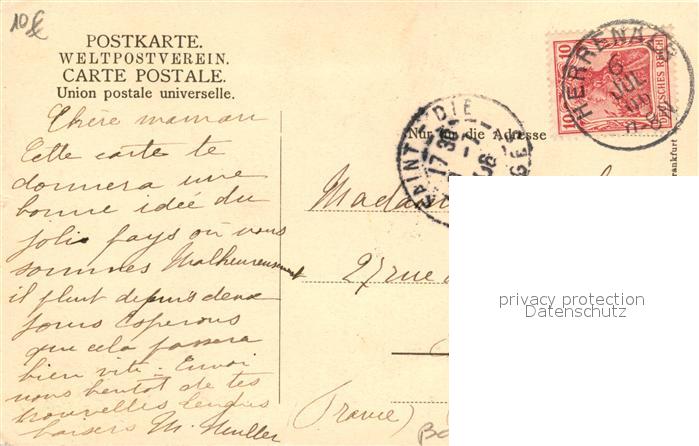 10
POSTKARTE.
WELTPOSTVEREIN.
CARTE POSTALE.
Union postale universelle.
Nur für die Adresse
HERRENALB
6
JUL
10
10
DEUTSCHES REICH
SAINT DIE
17 30
Frankfurt
Chère maman
Cette carte te
donnera une
bonne idée du
joli pays où nous
sommes Malheureusement
il pleut depuis deux
jours Esperons
que cela passera
bien vite. Envoi
nous bentot de tes
nouvelles
baisers M. Muller
Madame
27 rue
(France)
privacy protection
Datenschutz